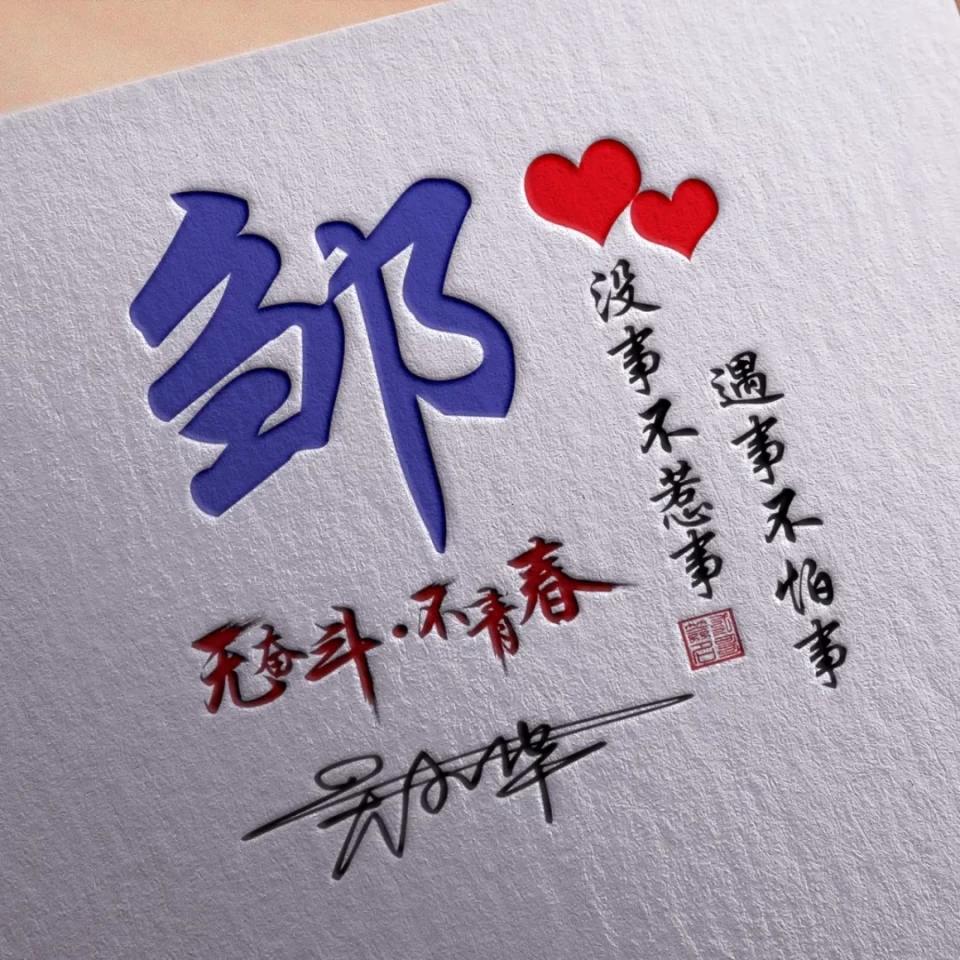 邹
没事不惹事
遇事不怕事
无奋斗·不青春